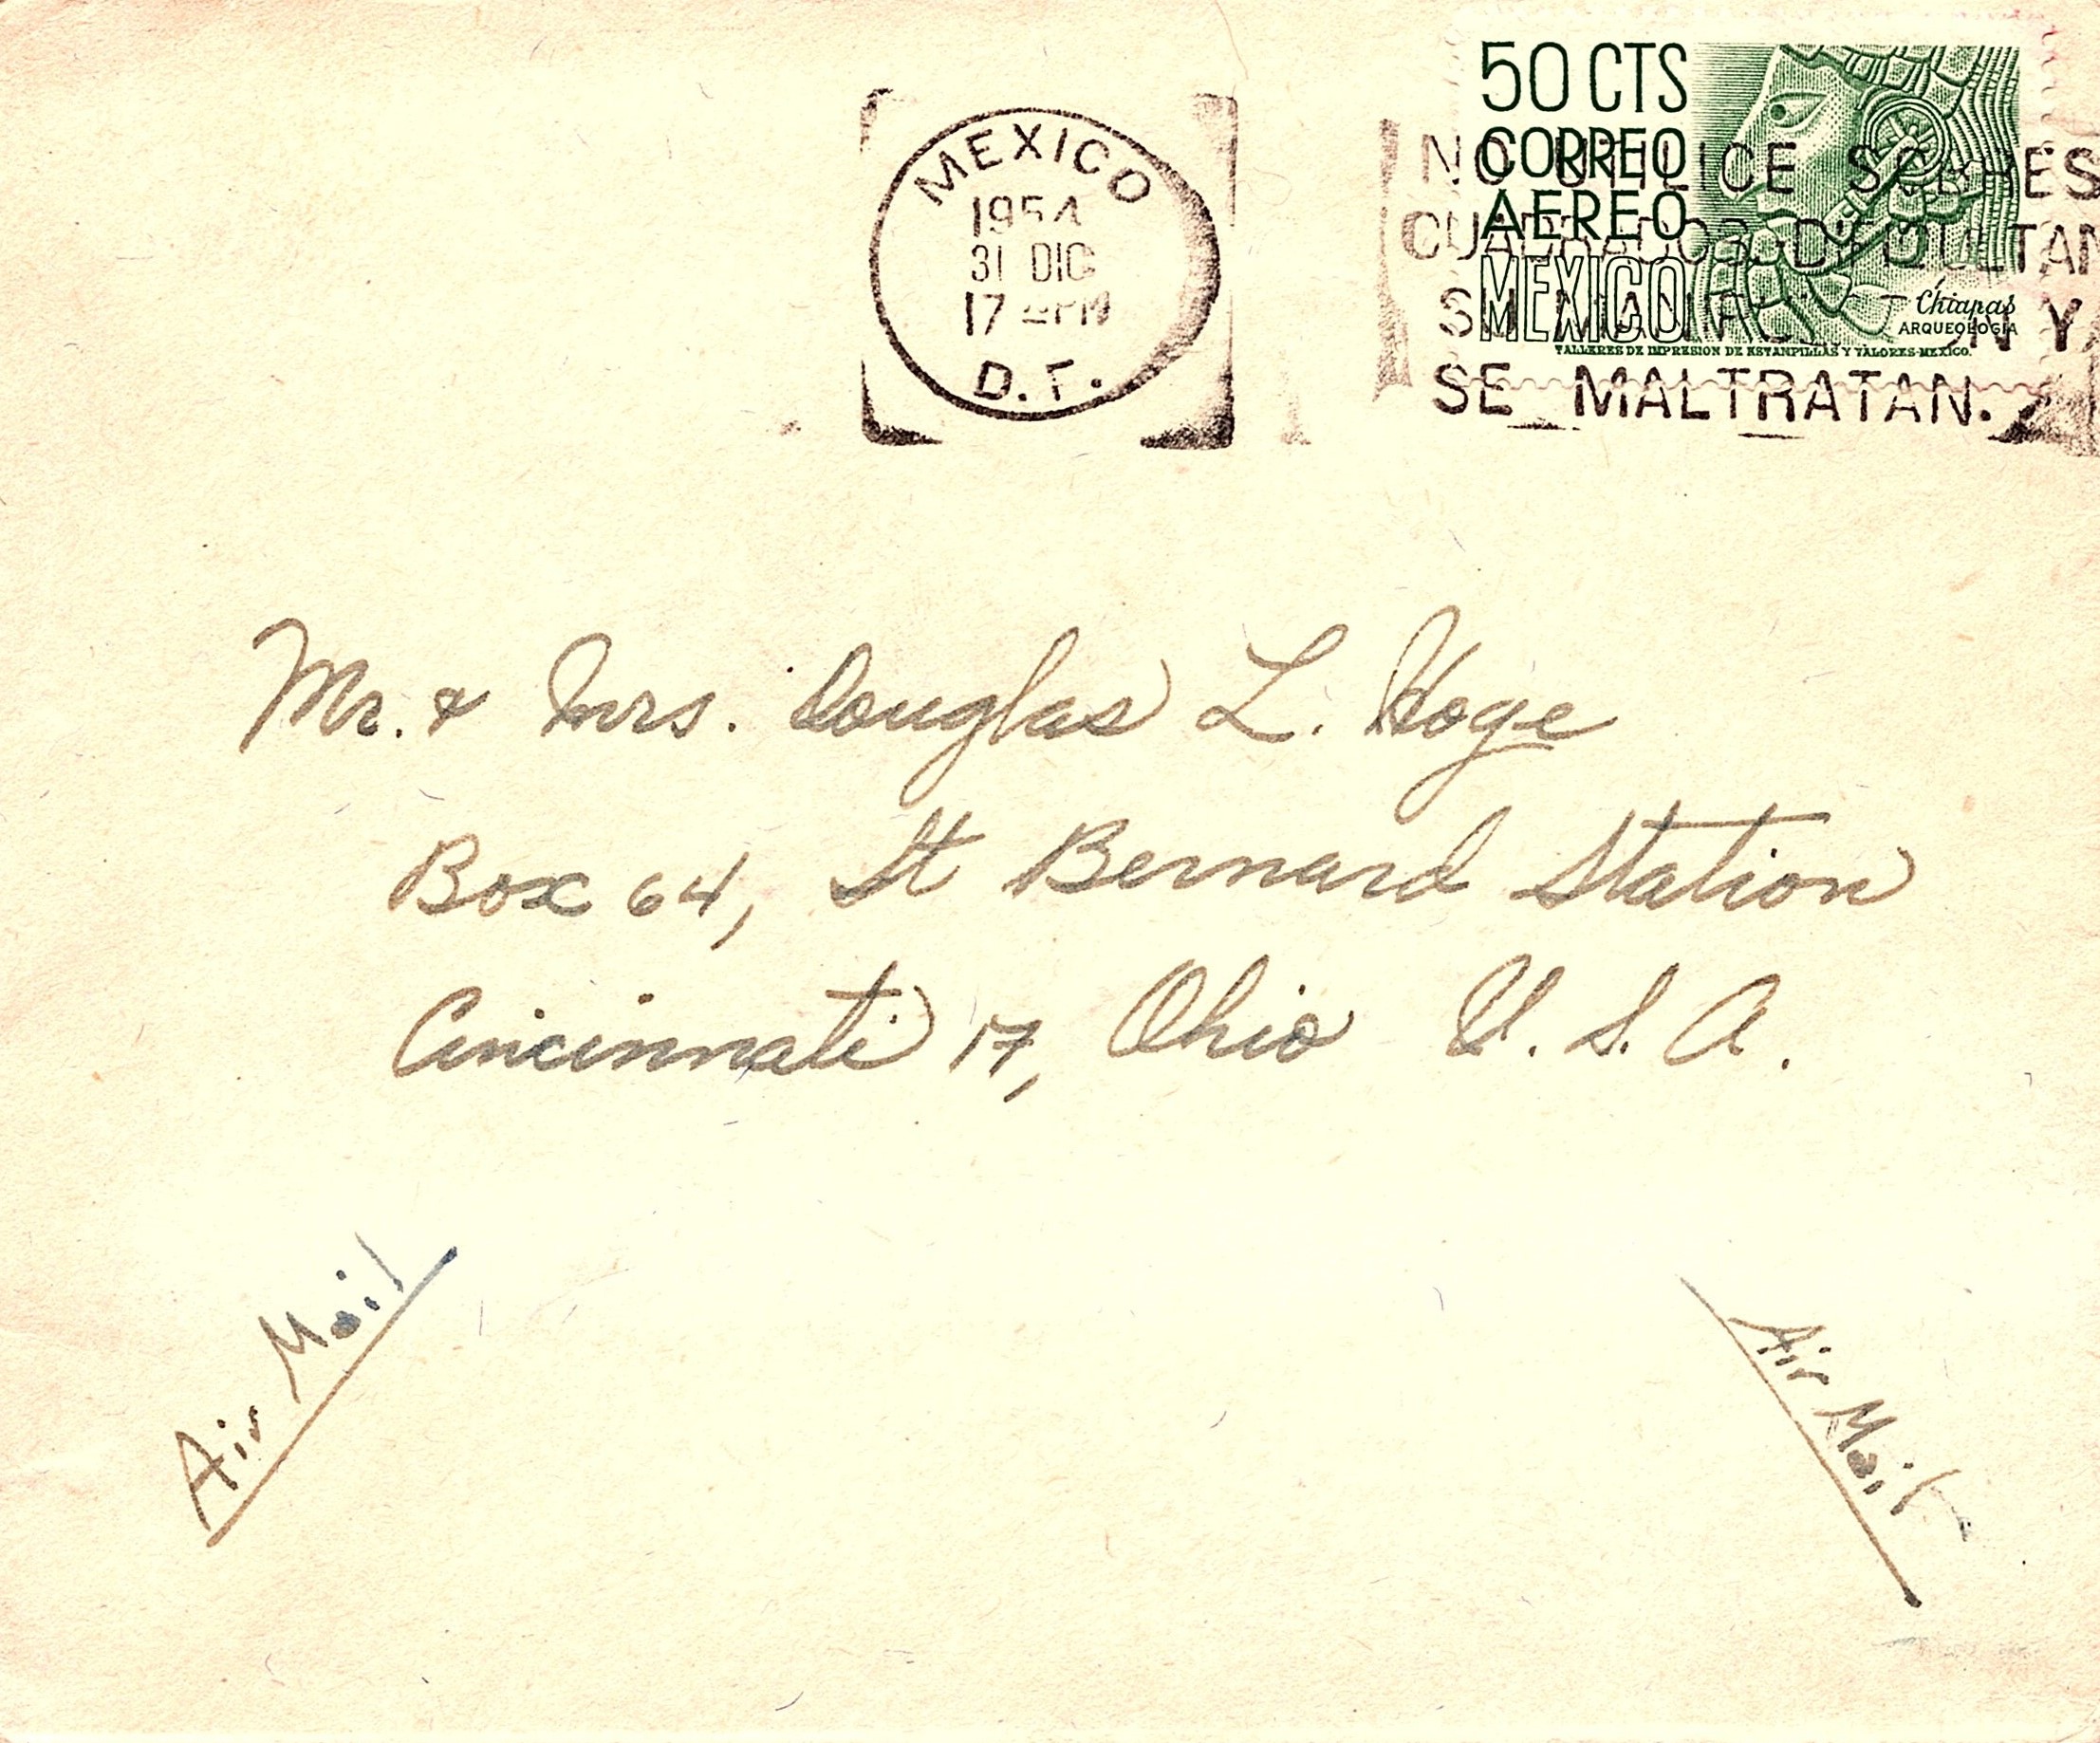 MEXICO
1954
31 DIC
17
D.F.
50 CTS
CORREO
AEREO
MEXICO
Chiapas
ARQUEOLOGIA
TALLERES DE IMPRESION DE ESTAMPILLAS Y VALORES-MEXICO.
NO UTILICE SOBRES
SE MALTRATAN.
Mr. & Mrs. Douglas L. Hoge
Box 64, St Bernard Station
Cincinnati 17, Ohio U.S.A.
Air Mail
Air Mail